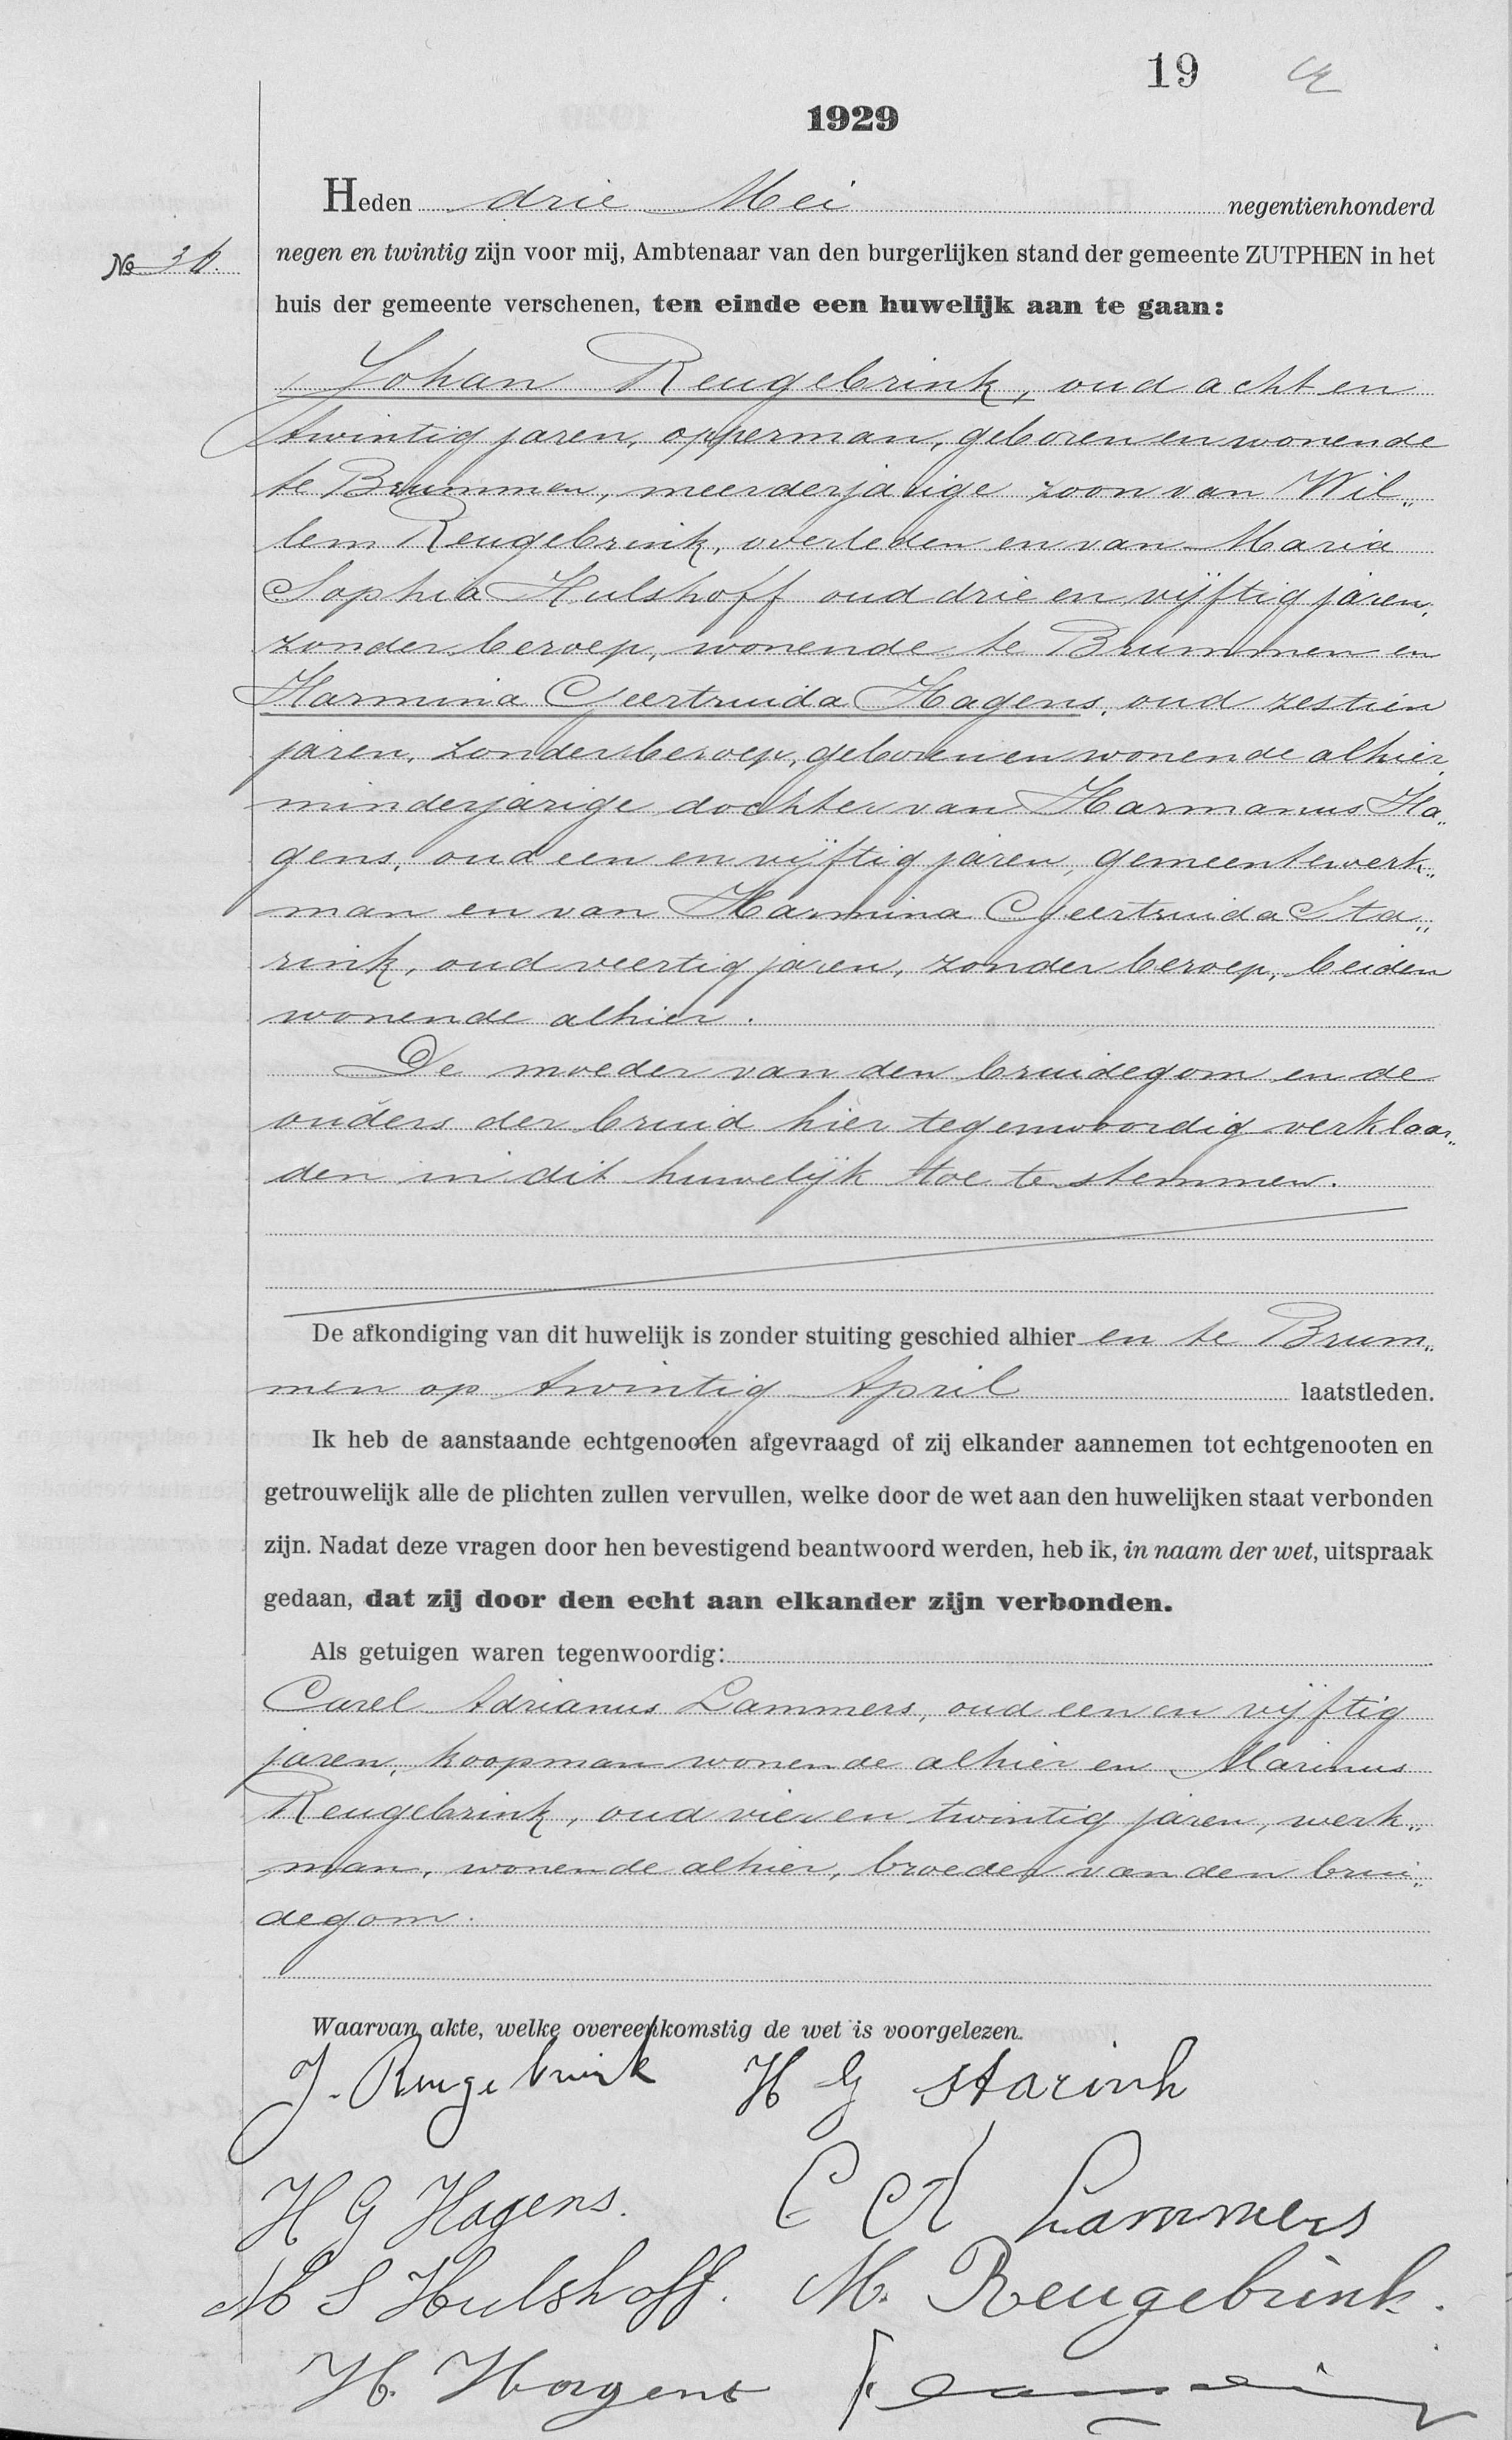 19
1929
Heden drie Mei negentienhonderd
No 36.
negen en twintig zijn voor mij, Ambtenaar van den burgerlijken stand der gemeente ZUTPHEN in het
huis der gemeente verschenen, ten einde een huwelijk aan te gaan:
Johan Reugebrink, oud acht en
twintig jaren, opperman, geboren en wonende
te Brummen, meerderjarige zoon van Wil„
lem Reugebrink, overleden en van Maria
Sophia Hulshoff oud drie en vijftig jaren,
zonder beroep, wonende te Brummen en
Harmina Geertruida Hagens, oud zestien
jaren, zonder beroep, geboren en wonende alhier,
minderjarige dochter van Harmanus Ha„
gens, oud een en vijftig jaren, gemeentewerk„
man en van Harmina Geertruida Sta„
rink, oud veertig jaren, zonder beroep, beiden
wonende alhier.
De moeder van den bruidegom en de
ouders der bruid hier tegenwoordig verklaar„
den in dit huwelijk toe te stemmen.
De afkondiging van dit huwelijk is zonder stuiting geschied alhier en te Brum„
men op twintig April laatstleden.
Ik heb de aanstaande echtgenooten afgevraagd of zij elkander aannemen tot echtgenooten en
getrouwelijk alle de plichten zullen vervullen, welke door de wet aan den huwelijken staat verbonden
zijn. Nadat deze vragen door hen bevestigend beantwoord werden, heb ik, in naam der wet, uitspraak
gedaan, dat zij door den echt aan elkander zijn verbonden.
Als getuigen waren tegenwoordig:
Carel Adrianus Lammers, oud een en vijftig
jaren, koopman wonende alhier en Marinus
Reugebrink, oud vier en twintig jaren, werk„
man, wonende alhier, broeder van den brui„
degom.
Waarvan akte, welke overeenkomstig de wet is voorgelezen.
J. Reugebrink H G Starink
H G Hagens. C A Lammers
M S Hulshoff. M. Reugebrink.
H. Hagens